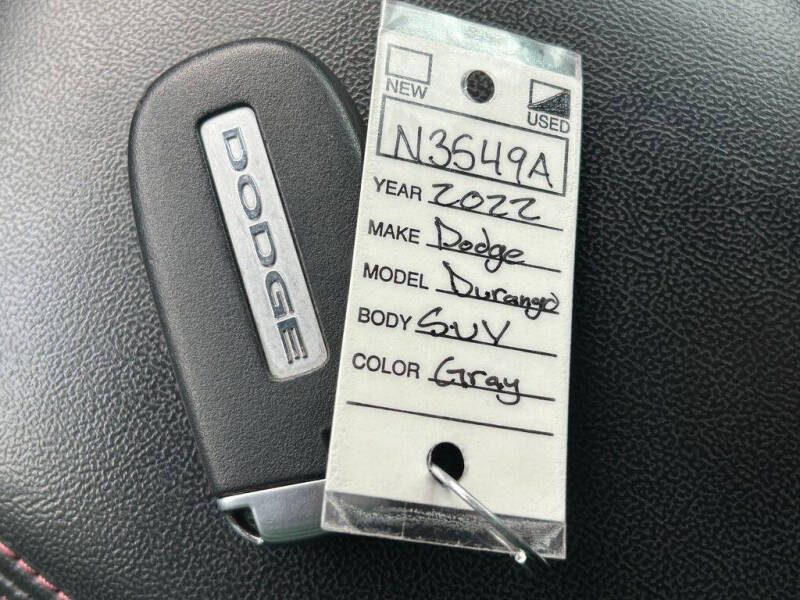 DODGE
NEW
USED
N3549A
YEAR 2022
MAKE Dodge
MODEL Durango
BODY SUV
COLOR Gray